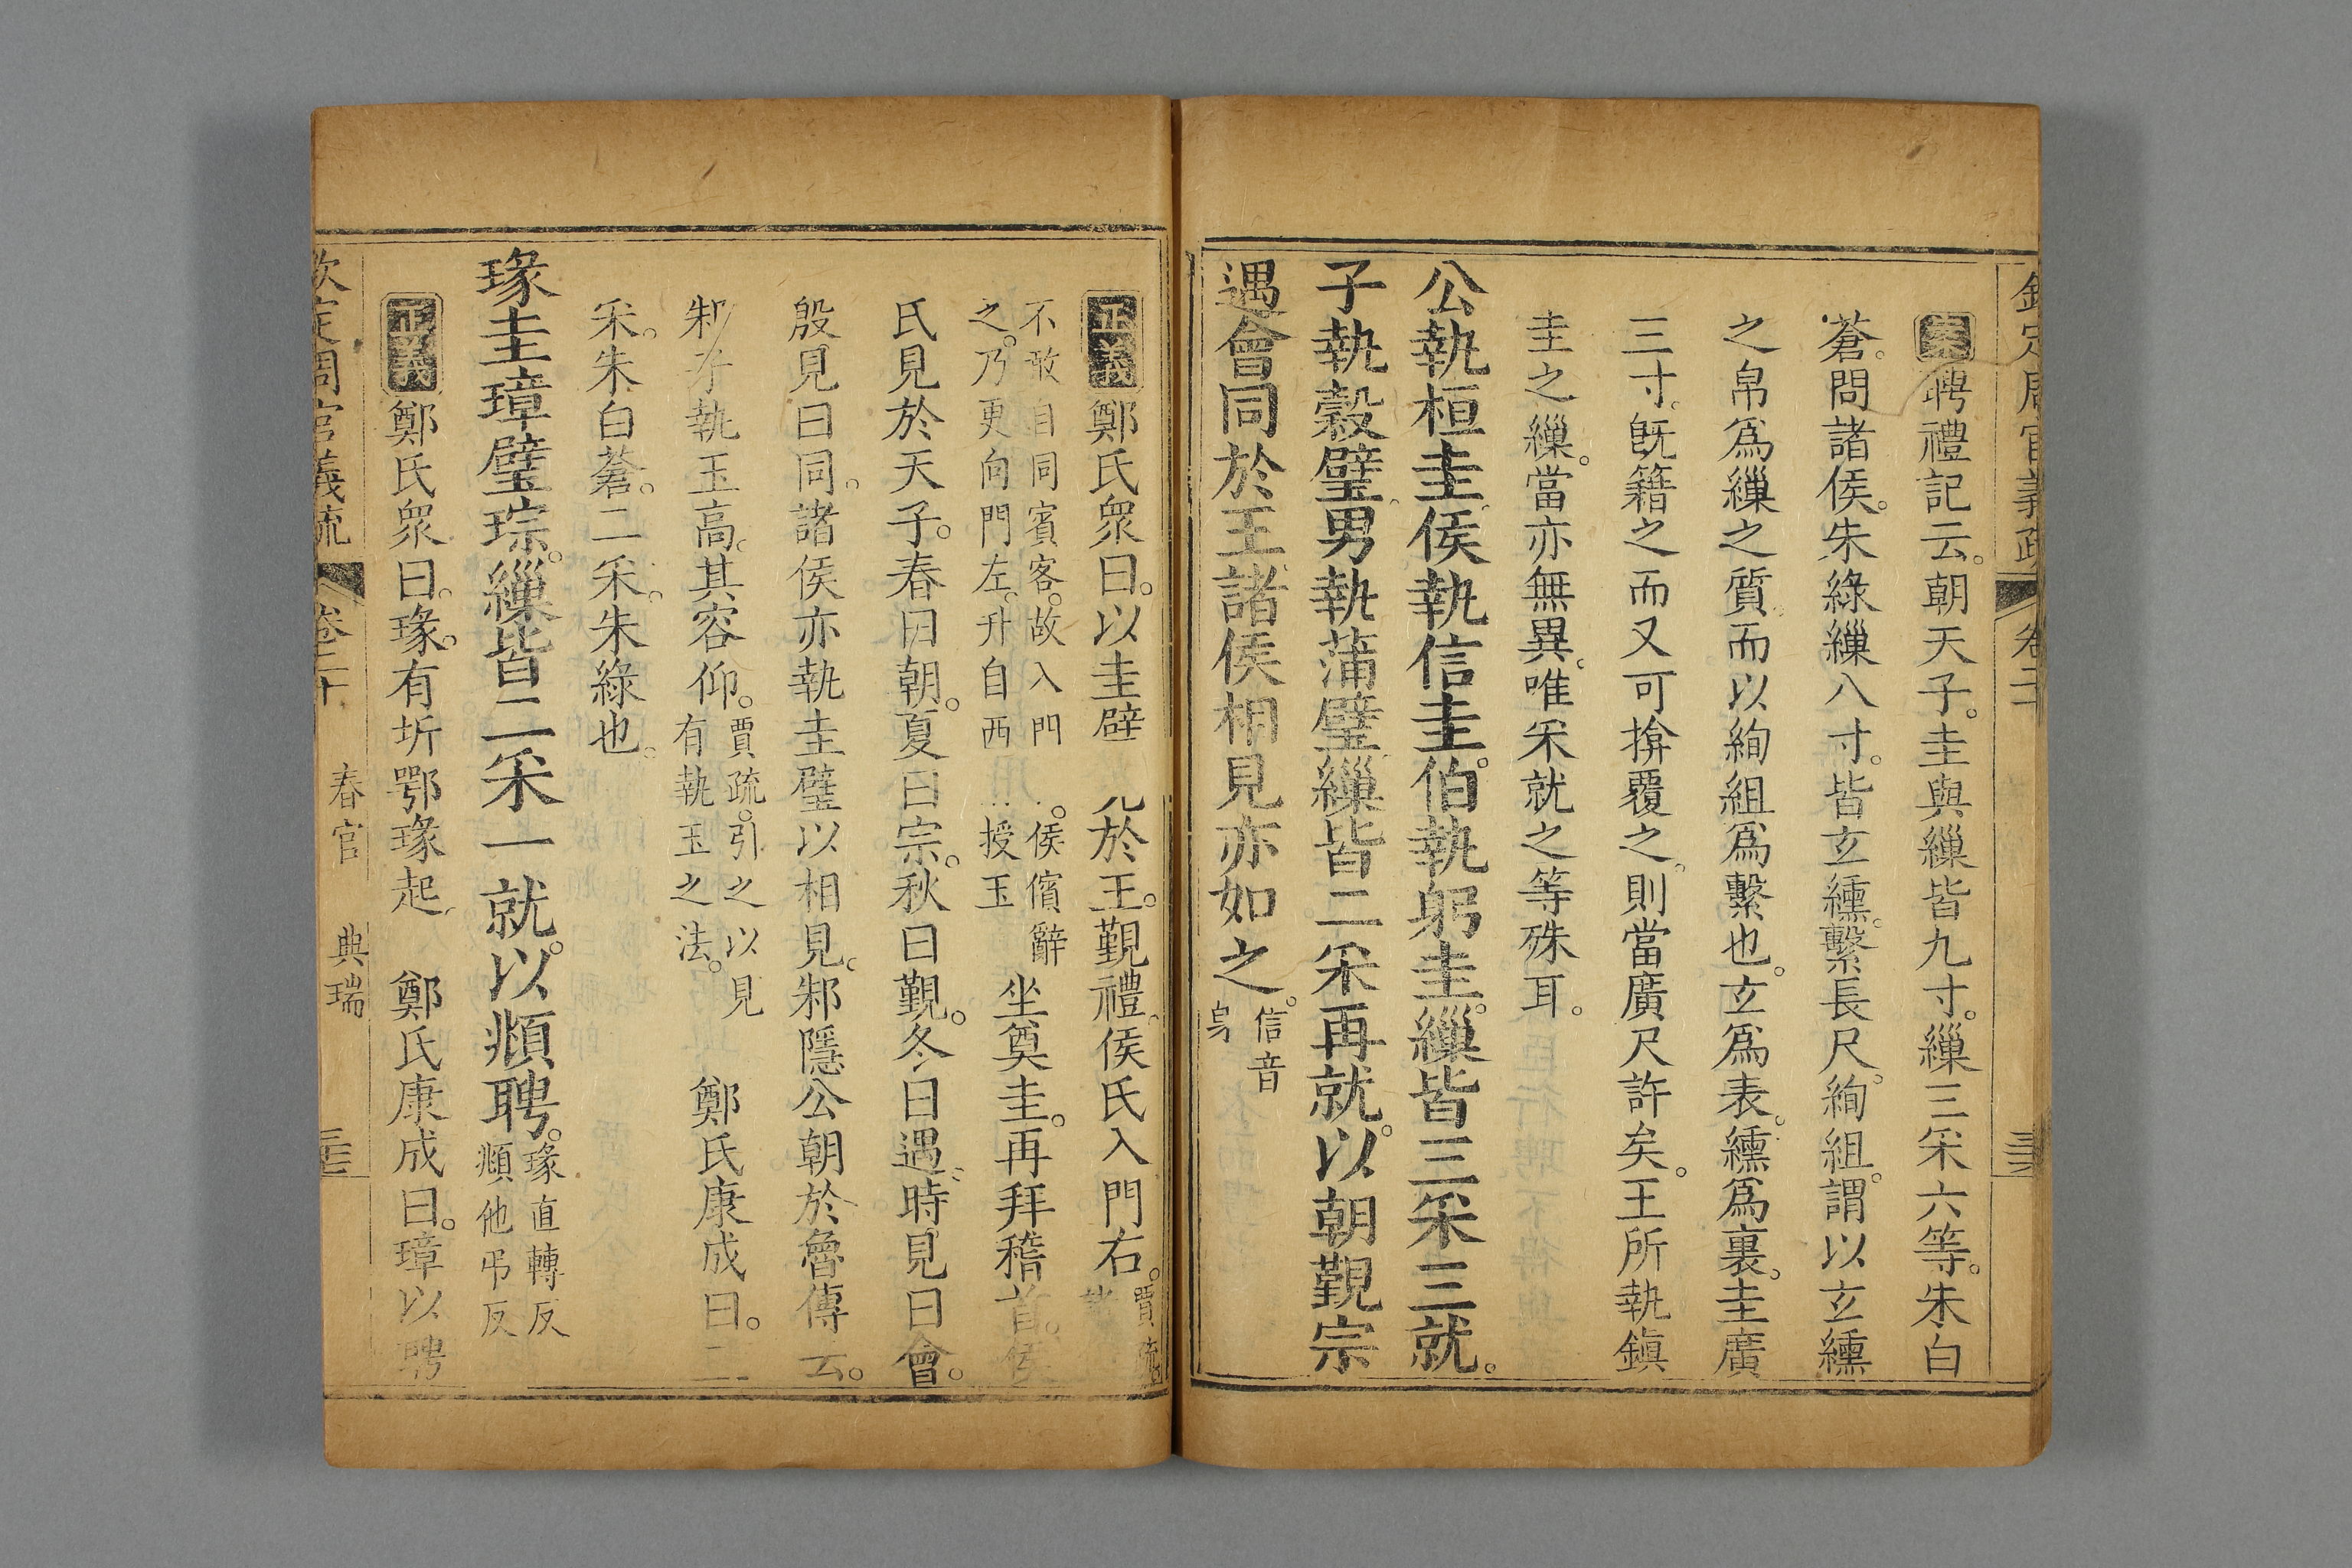 欽定周官義疏 卷二十
案聘禮記云朝天子圭與繅皆九寸繅三采六等朱白
蒼問諸侯朱綠繅八寸皆玄纁繫長尺絢組謂以玄纁
之帛為繅之質而以絢組為繫也玄為表纁為裏圭廣
三寸旣籍之而又可揜覆之則當廣尺許矣王所執鎭
圭之繅當亦無異唯采就之等殊耳
公執桓圭侯執信圭伯執躬圭繅皆三采三就
子執穀璧男執蒲璧繅皆二采再就以朝覲宗
遇會同於王諸侯相見亦如之信音身
正義鄭氏衆曰以圭璧見於王覲禮侯氏入門右賈疏
不敢自同賓客故入門
之乃更向門左升自西
侯儐辭
授玉
坐奠圭再拜稽首侯
氏見於天子春曰朝夏曰宗秋曰覲冬曰遇時見曰會
殷見曰同諸侯亦執圭璧以相見邾隱公朝於魯傳云
邾子執玉高其容仰賈疏引之以見有執玉之法 鄭氏康成曰二
采朱白蒼二采朱綠也
瑑圭璋璧琮繅皆二采一就以頫聘瑑直轉反頫他弔反
正義鄭氏衆曰瑑有圻鄂瑑起 鄭氏康成曰璋以聘
欽定周官義疏 卷二十 春官 典瑞